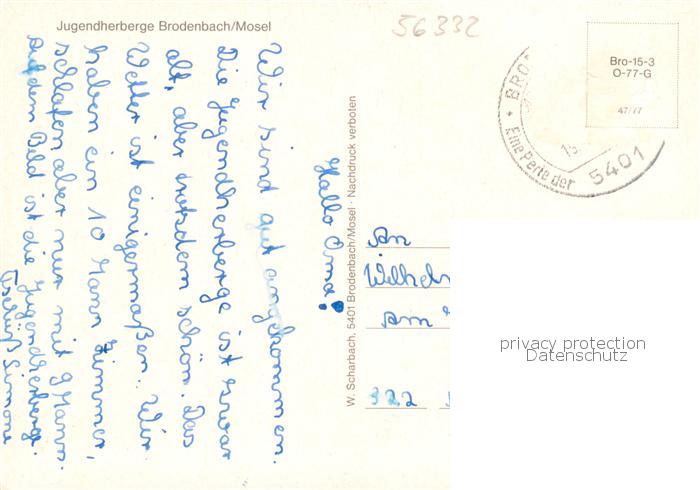 Jugendherberge Brodenbach/Mosel
56332
Bro-15-3
O-77-G
47/77
Eine Perle der
5401
Hallo Oma!
Wir sind gut angekommen.
Die Jugendherberge ist zwar
alt, aber trotzdem schön. Das
Wetter ist einigermaßen. Wir
haben ein 10 Mann Zimmer,
schlafen aber nur mit 9 Mann.
Auf dem Bild ist die Jugendherberge.
Tschüß Simone
W. Scharbach, 5401 Brodenbach/Mosel · Nachdruck verboten
An
Wilhelm
Am
322
privacy protection
Datenschutz